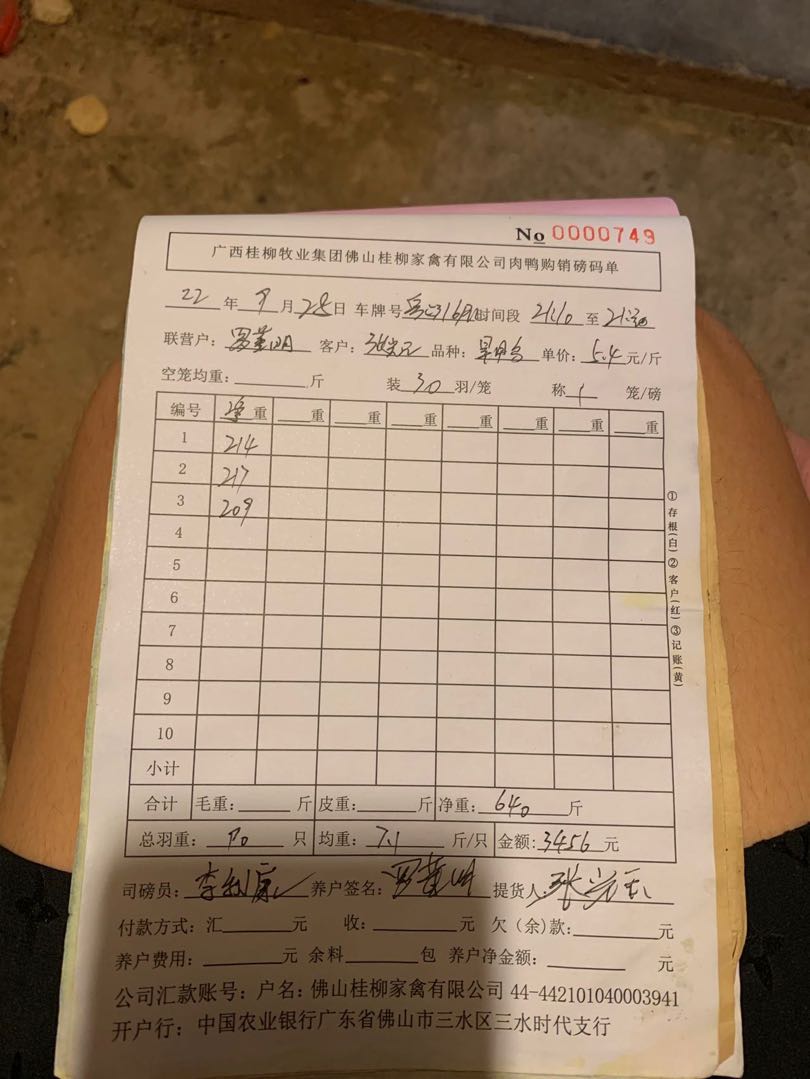 No 0000749
广西桂柳牧业集团佛山桂柳家禽有限公司肉鸭购销磅码单
22 年 9 月 28 日 车牌号 时间段 21:10 至
联营户： 客户： 品种： 单价：5.4 元/斤
空笼均重： 斤 装 30 羽/笼 称 1 笼/磅
编号 净重 重 重 重 重 重 重 重
1 214
2 217
3 209
4
5
6
7
8
9
10
小计
合计 毛重： 斤 皮重： 斤 净重：640 斤
总羽重：90 只 均重：7.1 斤/只 金额：3456 元
司磅员： 养户签名： 提货人：
付款方式：汇 元 收： 元 欠（余）款： 元
养户费用： 元 余料 包 养户净金额： 元
公司汇款账号：户名：佛山桂柳家禽有限公司 44-442101040003941
开户行：中国农业银行广东省佛山市三水区三水时代支行
①存根(白)②客户(红)③记账(黄)